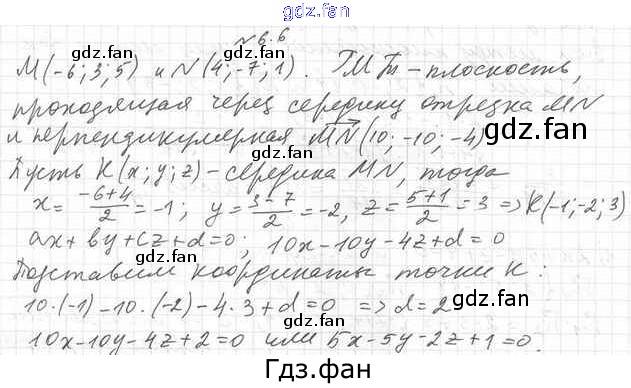 gdz.fan
№ 6.6
gdz.fan gdz.fan
M(-6; 3; 5) и N(4; -7; 1). ГМТ - плоскость,
проходящая через середину отрезка MN
и перпендикулярная MN(10; -10; -4)
gdz.fan gdz.fan
Пусть K(x; y; z) - середина MN, тогда
x = -6+4/2 = -1; y = 3-7/2 = -2, z = 5+1/2 = 3 ⇒ K(-1; -2; 3)
ax + by + cz + d = 0; 10x - 10y - 4z + d = 0
gdz.fan gdz.fan
Подставим координаты точки K:
10·(-1) - 10·(-2) - 4·3 + d = 0 ⇒ d = 2
gdz.fan gdz.fan
10x - 10y - 4z + 2 = 0 или 5x - 5y - 2z + 1 = 0.
Гдз.фан